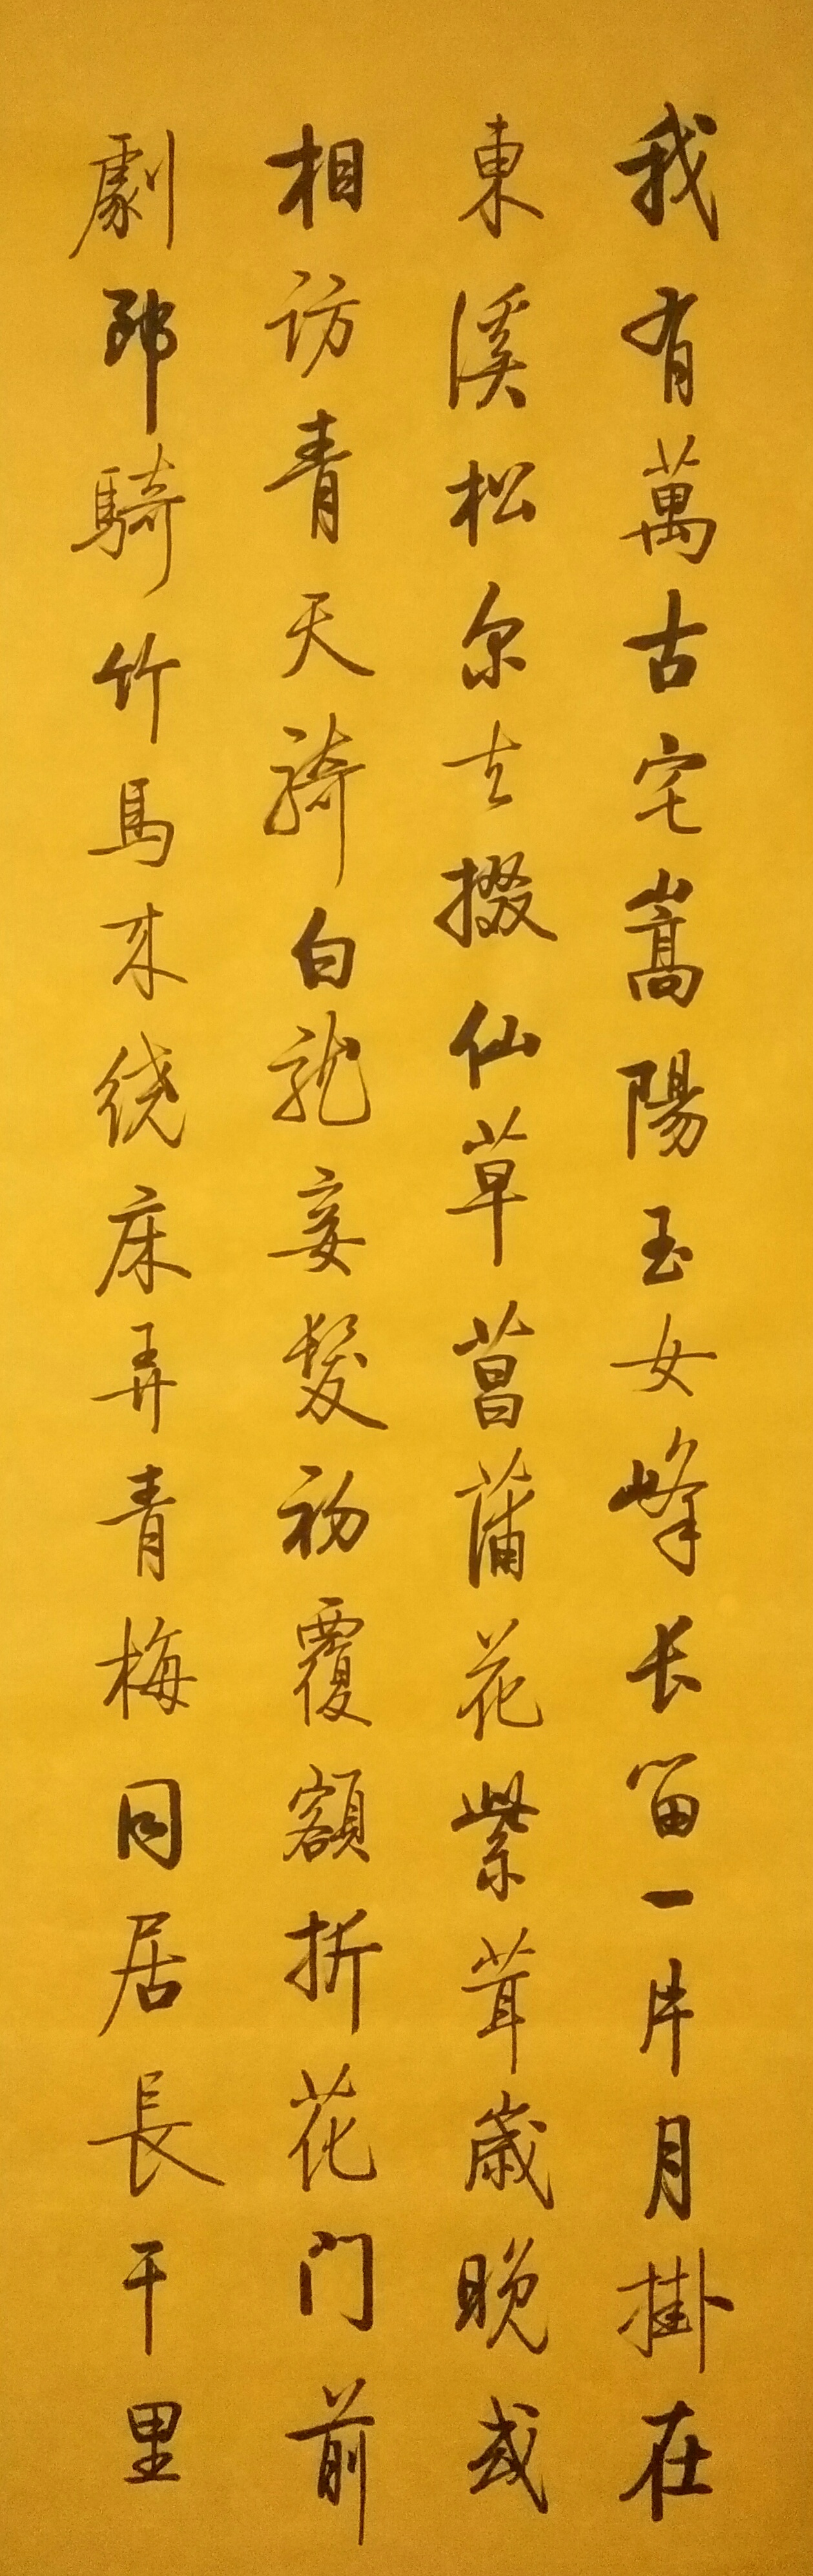 我有萬古宅嵩陽玉女峰长留一片月掛在
東溪松尔去掇仙草菖蒲花紫茸歲晚或
相访青天騎白龍妾髮初覆額折花门前
劇郎騎竹馬来绕床弄青梅同居長干里